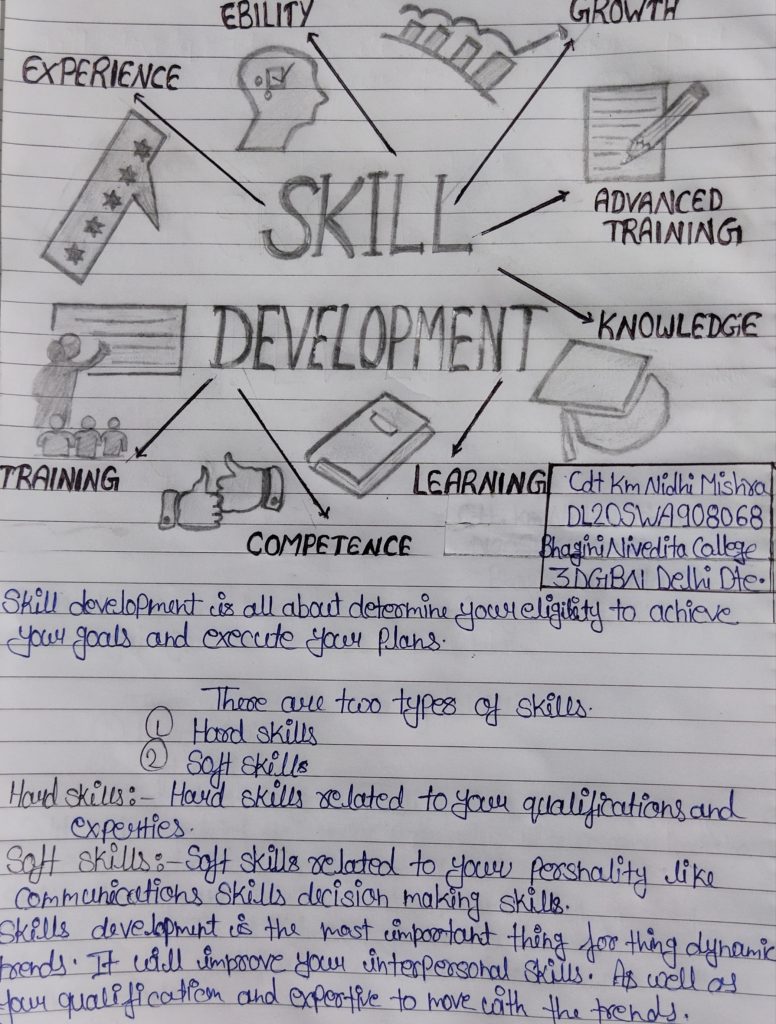 EBILITY
GROWTH
EXPERIENCE
SKILL
ADVANCED
TRAINING
DEVELOPMENT
KNOWLEDGE
TRAINING
LEARNING
COMPETENCE
Cdt Km Nidhi Mishra
DL20SWA908068
Bhagini Nivedita College
3DGBN Delhi Dte.
Skill development is all about determine your eligility to achieve
your goals and execute your plans.
There are two types of skills.
1 Hard skills
2 Soft skills
Hard skills:- Hard skills related to your qualifications and
experties.
Soft skills:- Soft skills related to your pershality like
communications skills decision making skills.
Skills development is the most important thing for thing dynamic
trends. It will improve your interpersonal skills. As well as
your qualification and expertive to move with the trends.